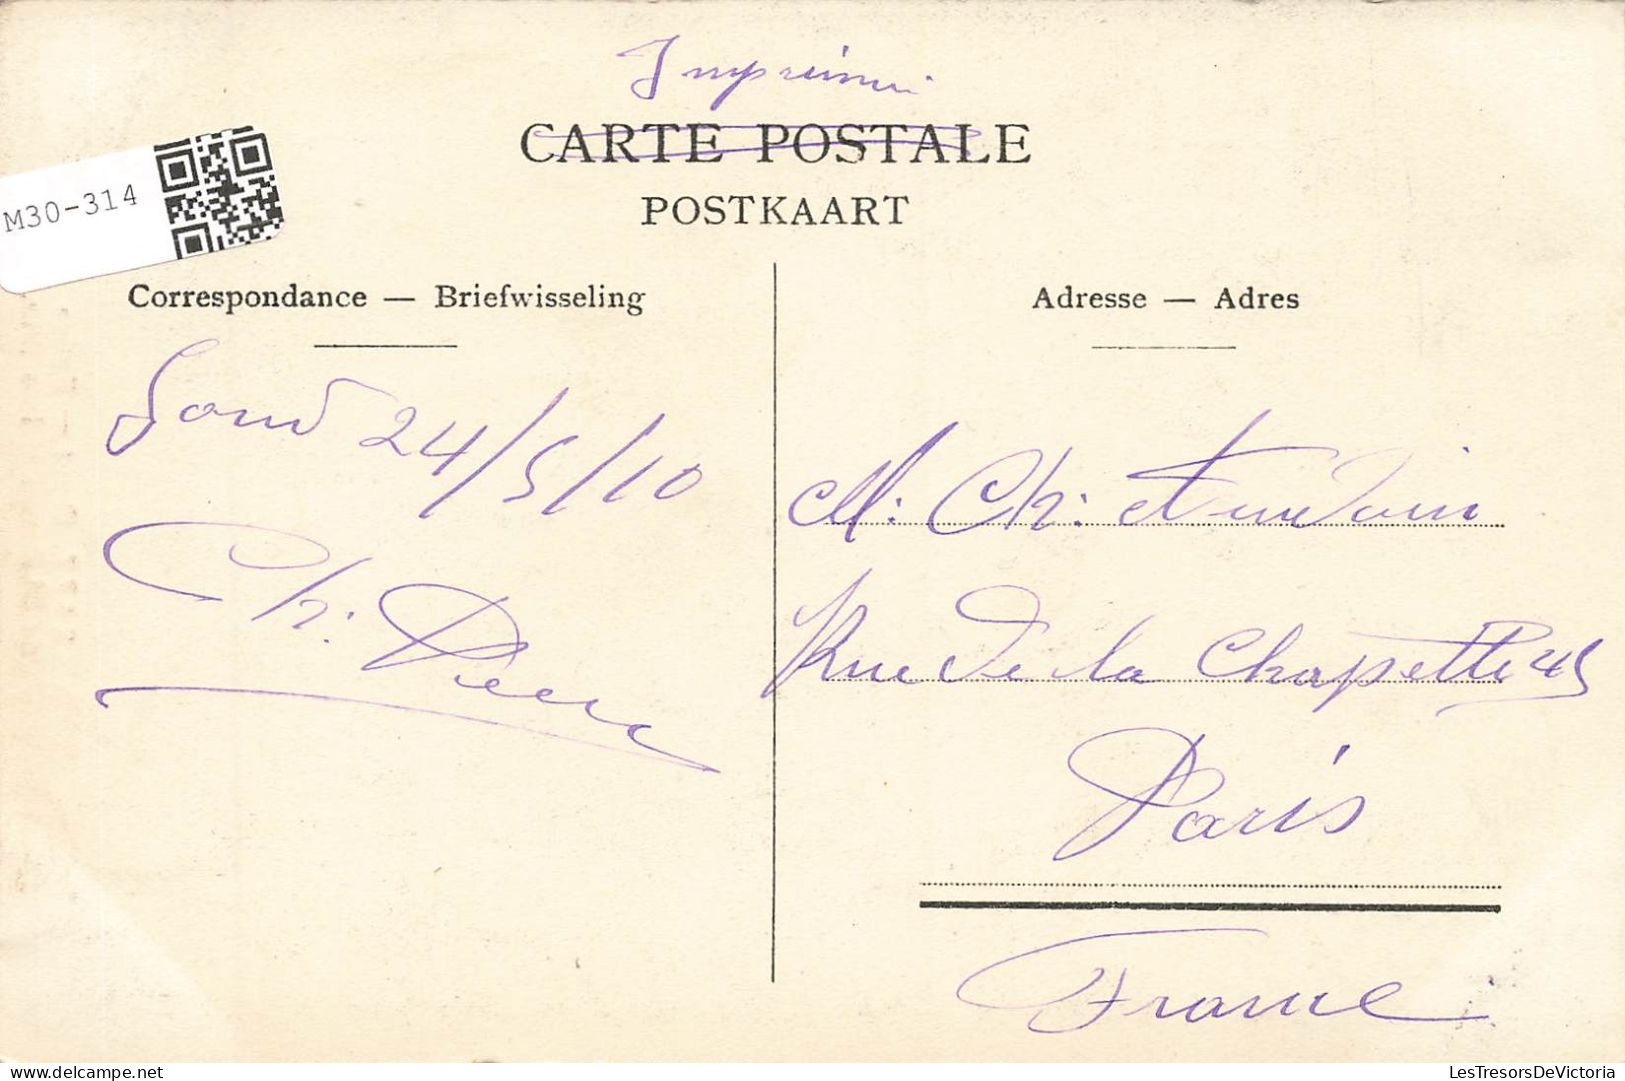 Imprimé
CARTE POSTALE
POSTKAART
M30-314
Correspondance — Briefwisseling
Adresse — Adres
Gand 24/5/10
Ch:
M: Ch:
Rue de la Chapelle 45
Paris
France
delcampe.net
LesTresorsDeVictoria